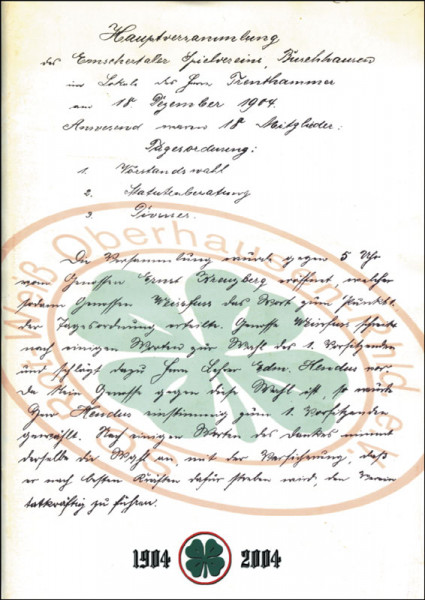 Hauptversammlung
des Emschertaler Spielvereins, Buschhausen
im Lokale des Herrn Trenthammer
am 18 Dezember 1904.
Anwesend waren 18 Mitglieder:
Tagesordnung:
1. Vorstandswahl
2. Statutenberatung
3. Diverses.
Die Versammlung wurde gegen 5 Uhr
vom Genossen Ernst eröffnet, welcher
sodann Genossen das Wort zum Punkt 1.
der Tagesordnung erteilte. Genosse
nach einigen Worten zur Wahl des 1. Vorsitzenden
und schlägt dazu Herrn Edm. Hendus vor.
Da kein Genosse gegen diese Wahl ist, so wurde
Herr Hendus einstimmig zum 1. Vorsitzenden
gewählt. Nach einigen Worten des Dankes nimmt
derselbe die Wahl an, mit der Versicherung, daß
er nach besten Kräften dafür streben wird, den Verein
tatkräftig zu führen.
Oberhausen
1904 2004